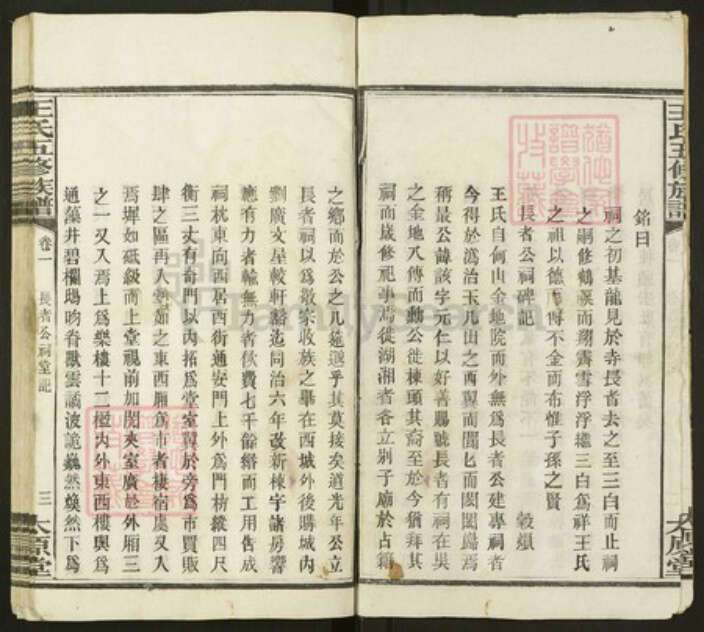 銘曰
祠之初基龍見於寺長者去之至三白而止祠
之嗣修鶴唳而翔霽雪浮浮繼三白爲祥王氏
之祖以德而傳不金而布惟子孫之賢
長者公祠碑記
王氏自何山金地院而外無爲長者公建專祠者
今得於瀉治玉几田之西巽而閣匕而閎閎焉
稱最公諱該字元仁以好善賜號長者有祠在吳
之金地八傳而勳公徙棟頭其裔至於今猶拜其
祠而歲修祀事焉徙湖湘者各立別子廟於占籍
之鄉而於公之几筵邈乎其莫接矣道光年公立
長者祠以爲敬宗收族之舉在西城外後購城內
劉廣文屋較軒豁造同治六年改新棟宇諸房響
應有力者輸無力者佽費七千餘緡而工用告成
祠枕東向西居西街通安門上外爲門枋縱四尺
衡三丈有奇門以內拓爲堂室翼於旁爲市買販
肆之區再入
之東西廂爲市者棲宿處又入
爲墀如砥級而上堂視前加閎夾室廣於外廂三
之一又入焉上爲樂樓十二楹內外東西樓輿爲
通藻井碧欄
獸雲譎波詭巍然煥然下爲
王氏五修族譜
卷一
長者公祠堂記
三
太原堂
王氏五修族譜
太原堂